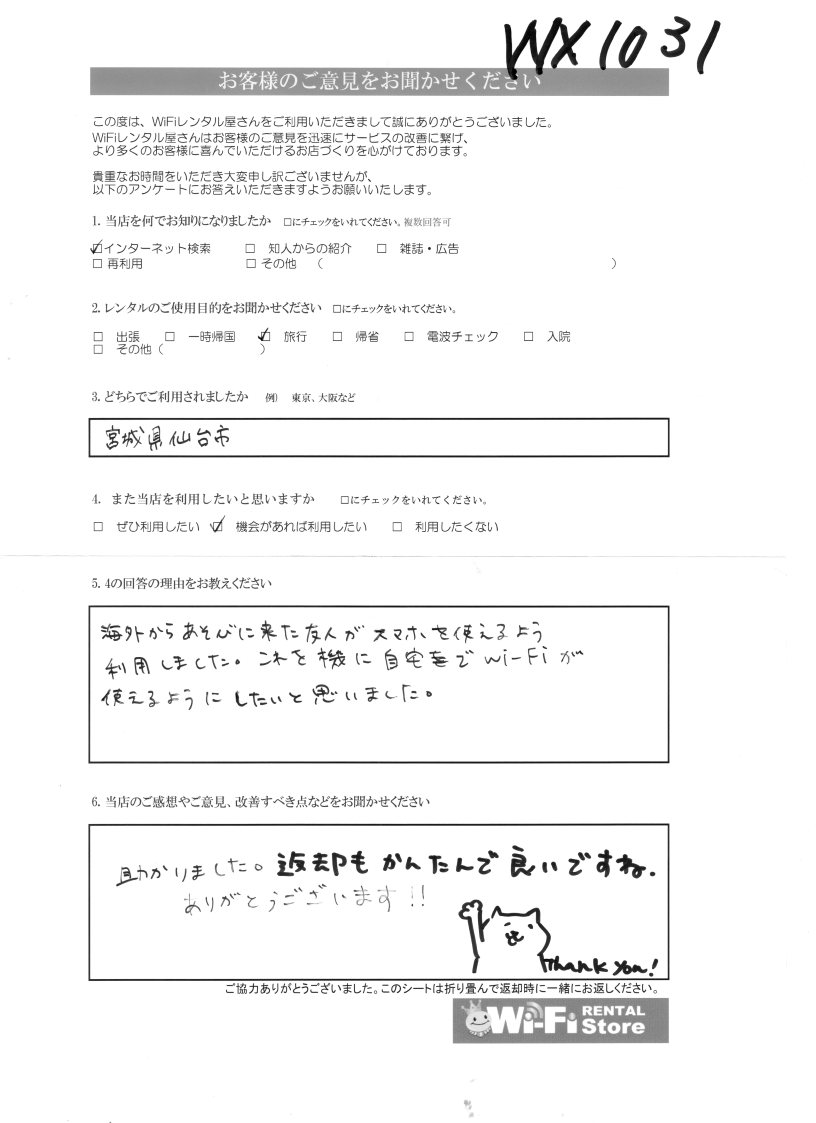 WX1031
お客様のご意見をお聞かせください
この度は、WiFiレンタル屋さんをご利用いただきまして誠にありがとうございました。
WiFiレンタル屋さんはお客様のご意見を迅速にサービスの改善に繋げ、
より多くのお客様に喜んでいただけるお店づくりを心がけております。
貴重なお時間をいただき大変申し訳ございませんが、
以下のアンケートにお答えいただきますようお願いいたします。
1. 当店を何でお知りになりましたか □にチェックをいれてください。複数回答可
☑インターネット検索 □ 知人からの紹介 □ 雑誌・広告
□ 再利用 □ その他 （ ）
2. レンタルのご使用目的をお聞かせください □にチェックをいれてください。
□ 出張 □ 一時帰国 ☑ 旅行 □ 帰省 □ 電波チェック □ 入院
□ その他（ ）
3. どちらでご利用されましたか 例） 東京、大阪など
宮城県仙台市
4. また当店を利用したいと思いますか □にチェックをいれてください。
□ ぜひ利用したい ☑ 機会があれば利用したい □ 利用したくない
5. 4の回答の理由をお教えください
海外からあそびに来た友人がスマホを使えるよう
利用しました。これを機に自宅でWi-Fiが
使えるようにしたいと思いました。
6. 当店のご感想やご意見、改善すべき点などをお聞かせください
助かりました。返却もかんたんで良いですね.
ありがとうございます!!
Thank you!
ご協力ありがとうございました。このシートは折り畳んで返却時に一緒にお返しください。
Wi-Fi RENTAL Store